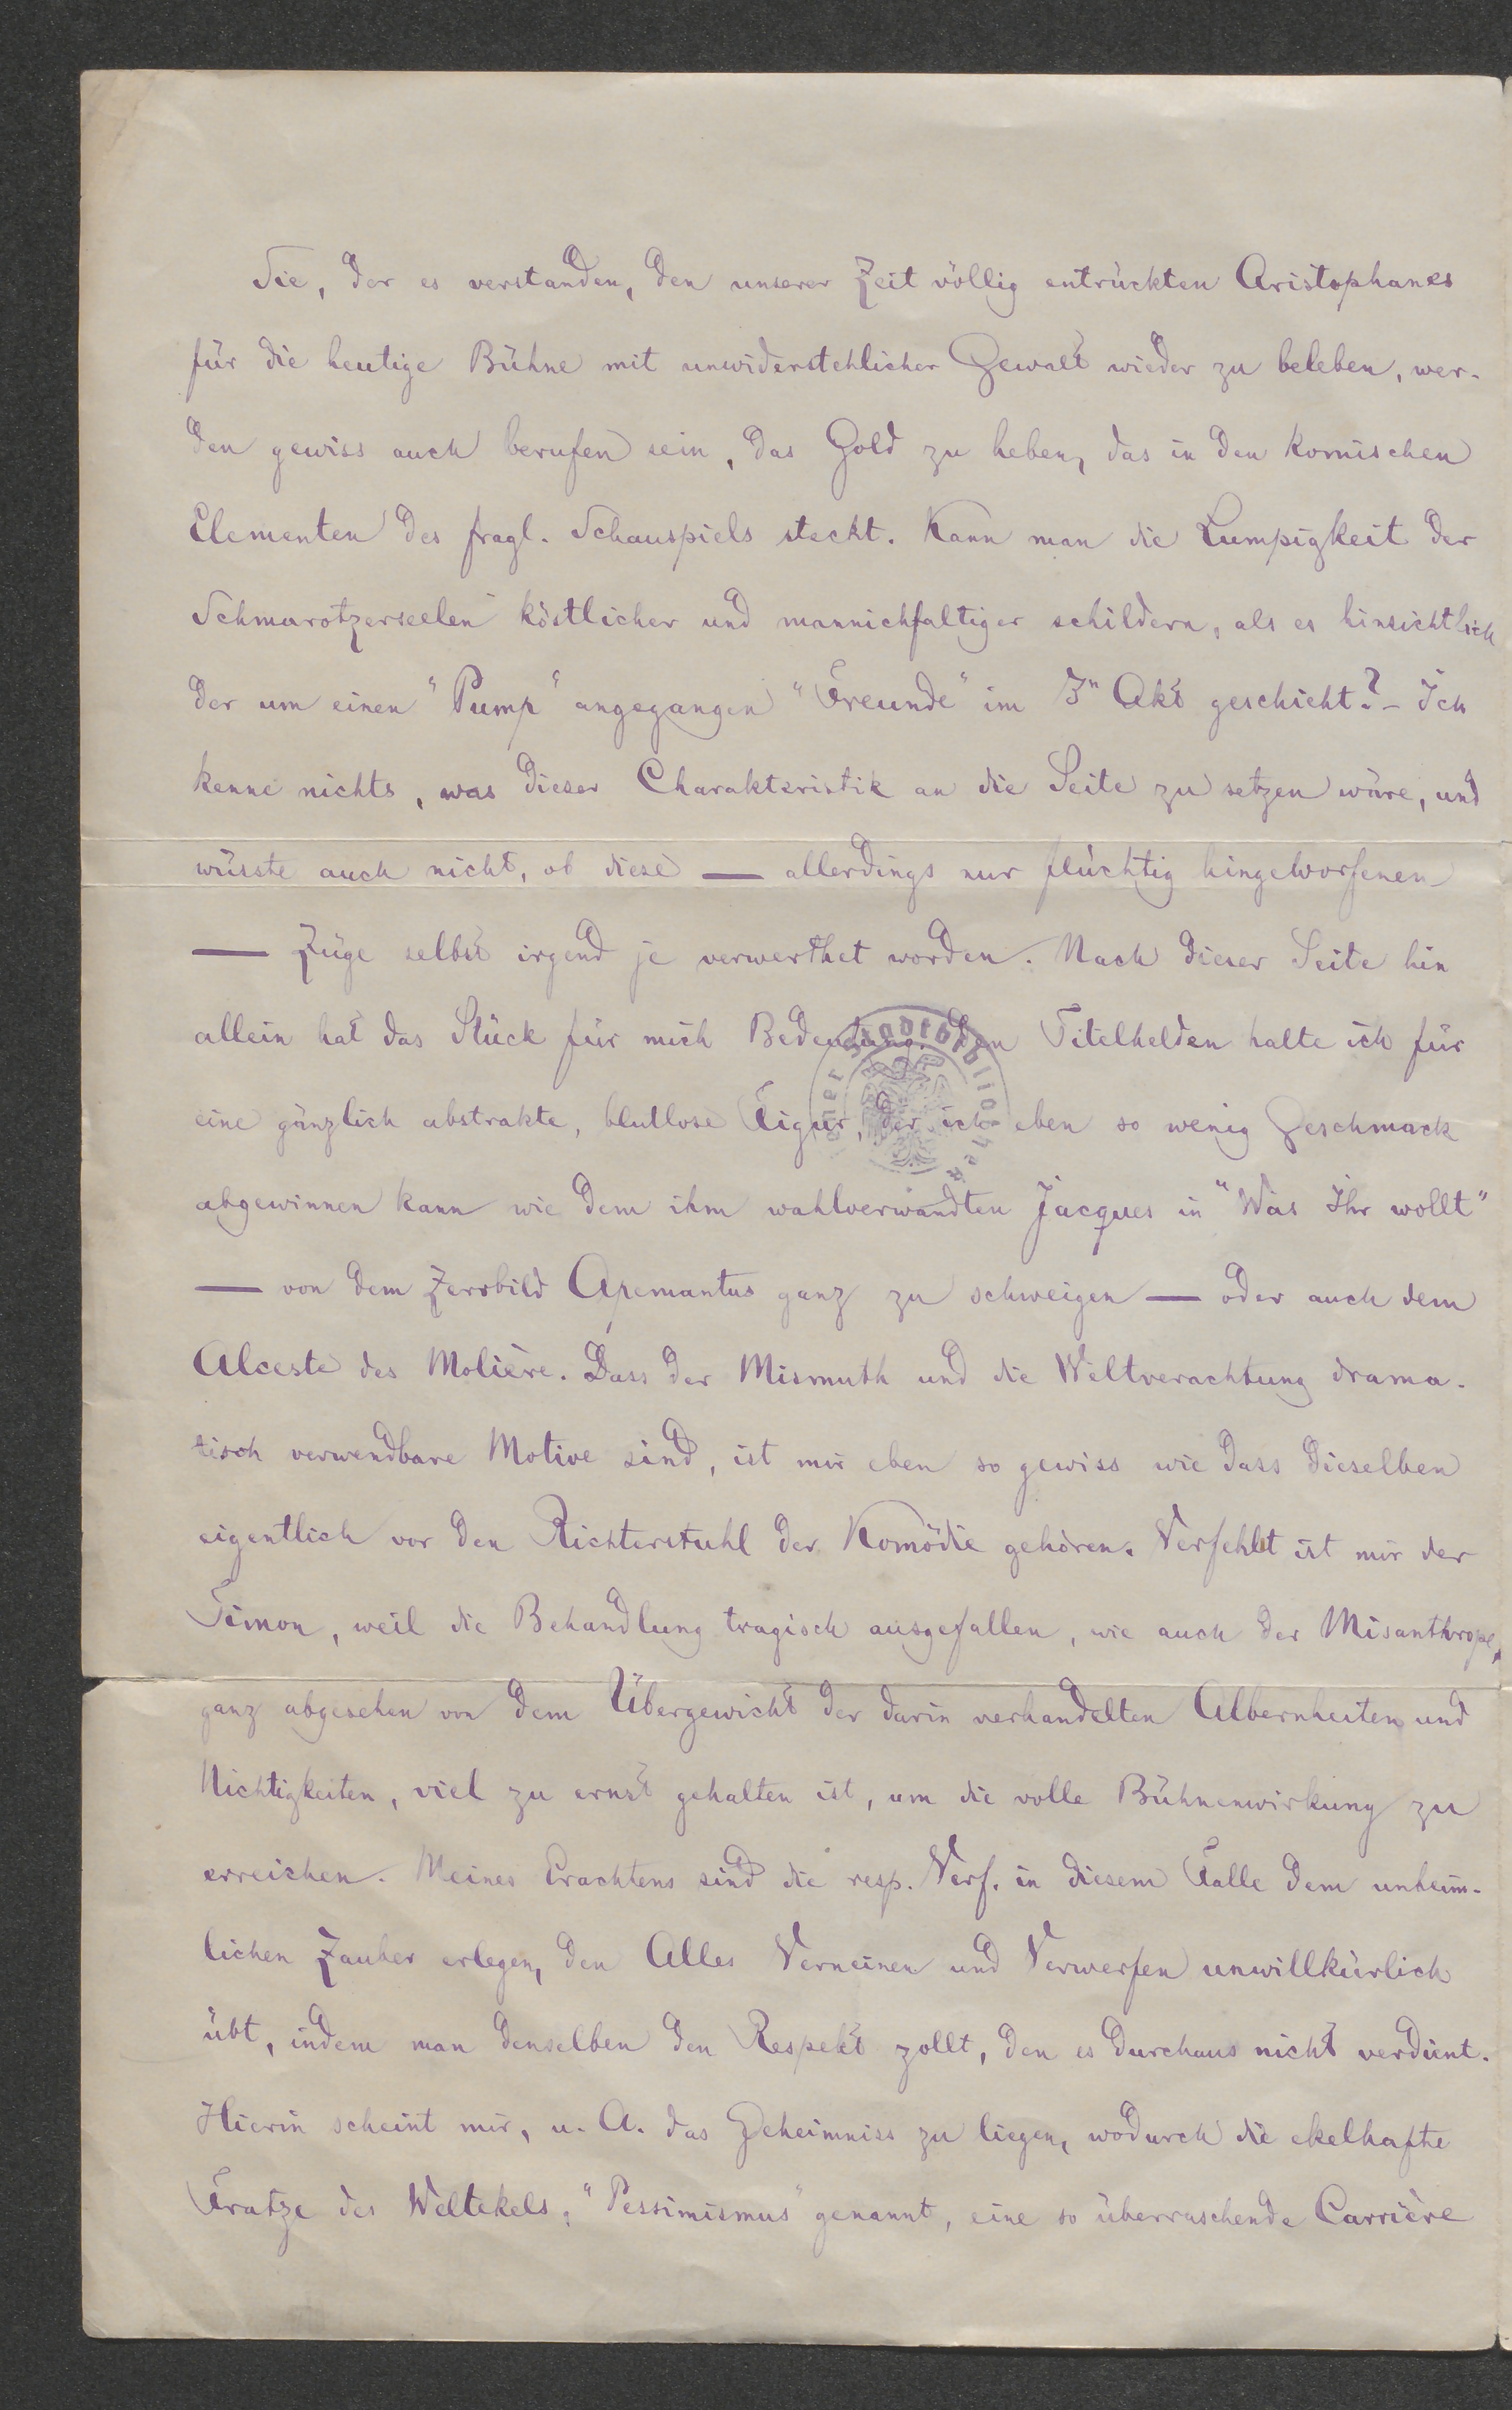 Sie, der es verstanden, den unserer Zeit völlig entrückten Aristophanes
für die heutige Bühne mit unwiderstehlicher Gewalt wieder zu beleben, wer-
den gewiss auch berufen sein, das Gold zu heben, das in den komischen
Elementen des fragl. Schauspiels steckt. Kann man die Lumpigkeit der
Schmarotzerseelen köstlicher und mannichfaltiger schildern, als es hinsichtlich
der um einen "Pump" angegangen "Freunde" im 3n Akt geschieht? - Ich
kenne nichts, was dieser Charakteristik an die Seite zu setzen wäre, und
wüsste auch nicht, ob diese — allerdings nur flüchtig hingeworfenen
— Züge selbst irgend je verwerthet worden. Nach dieser Seite hin
allein hat das Stück für mich Bedeutung. Den Titelhelden halte ich für
eine gänzlich abstrakte, blutlose Figur, der ich eben so wenig Geschmack
abgewinnen kann wie dem ihm wahlverwandten Jacques in "Was Ihr wollt"
— von dem Zerrbild Apemantus ganz zu schweigen — oder auch dem
Alceste des Molière. Dass der Mismuth und die Weltverachtung drama-
tisch verwendbare Motive sind, ist mir eben so gewiss wie dass dieselben
eigentlich vor den Richterstuhl der Komödie gehören. Verfehlt ist mir der
Timon, weil die Behandlung tragisch ausgefallen, wie auch der Misanthrope,
ganz abgesehen von dem Übergewicht der darin verhandelten Albernheiten und
Nichtigkeiten, viel zu ernst gehalten ist, um die volle Bühnenwirkung zu
erreichen. Meines Erachtens sind die resp. Verf. in diesem Falle dem unheim-
lichen Zauber erlegen, den Alles Verneinen und Verwerfen unwillkürlich
übt, indem man denselben den Respekt zollt, den es durchaus nicht verdient.
Hierin scheint mir, u. A. das Geheimniss zu liegen, wodurch die ekelhafte
Fratze des Weltekels, "Pessimismus" genannt, eine so überraschende Carrière